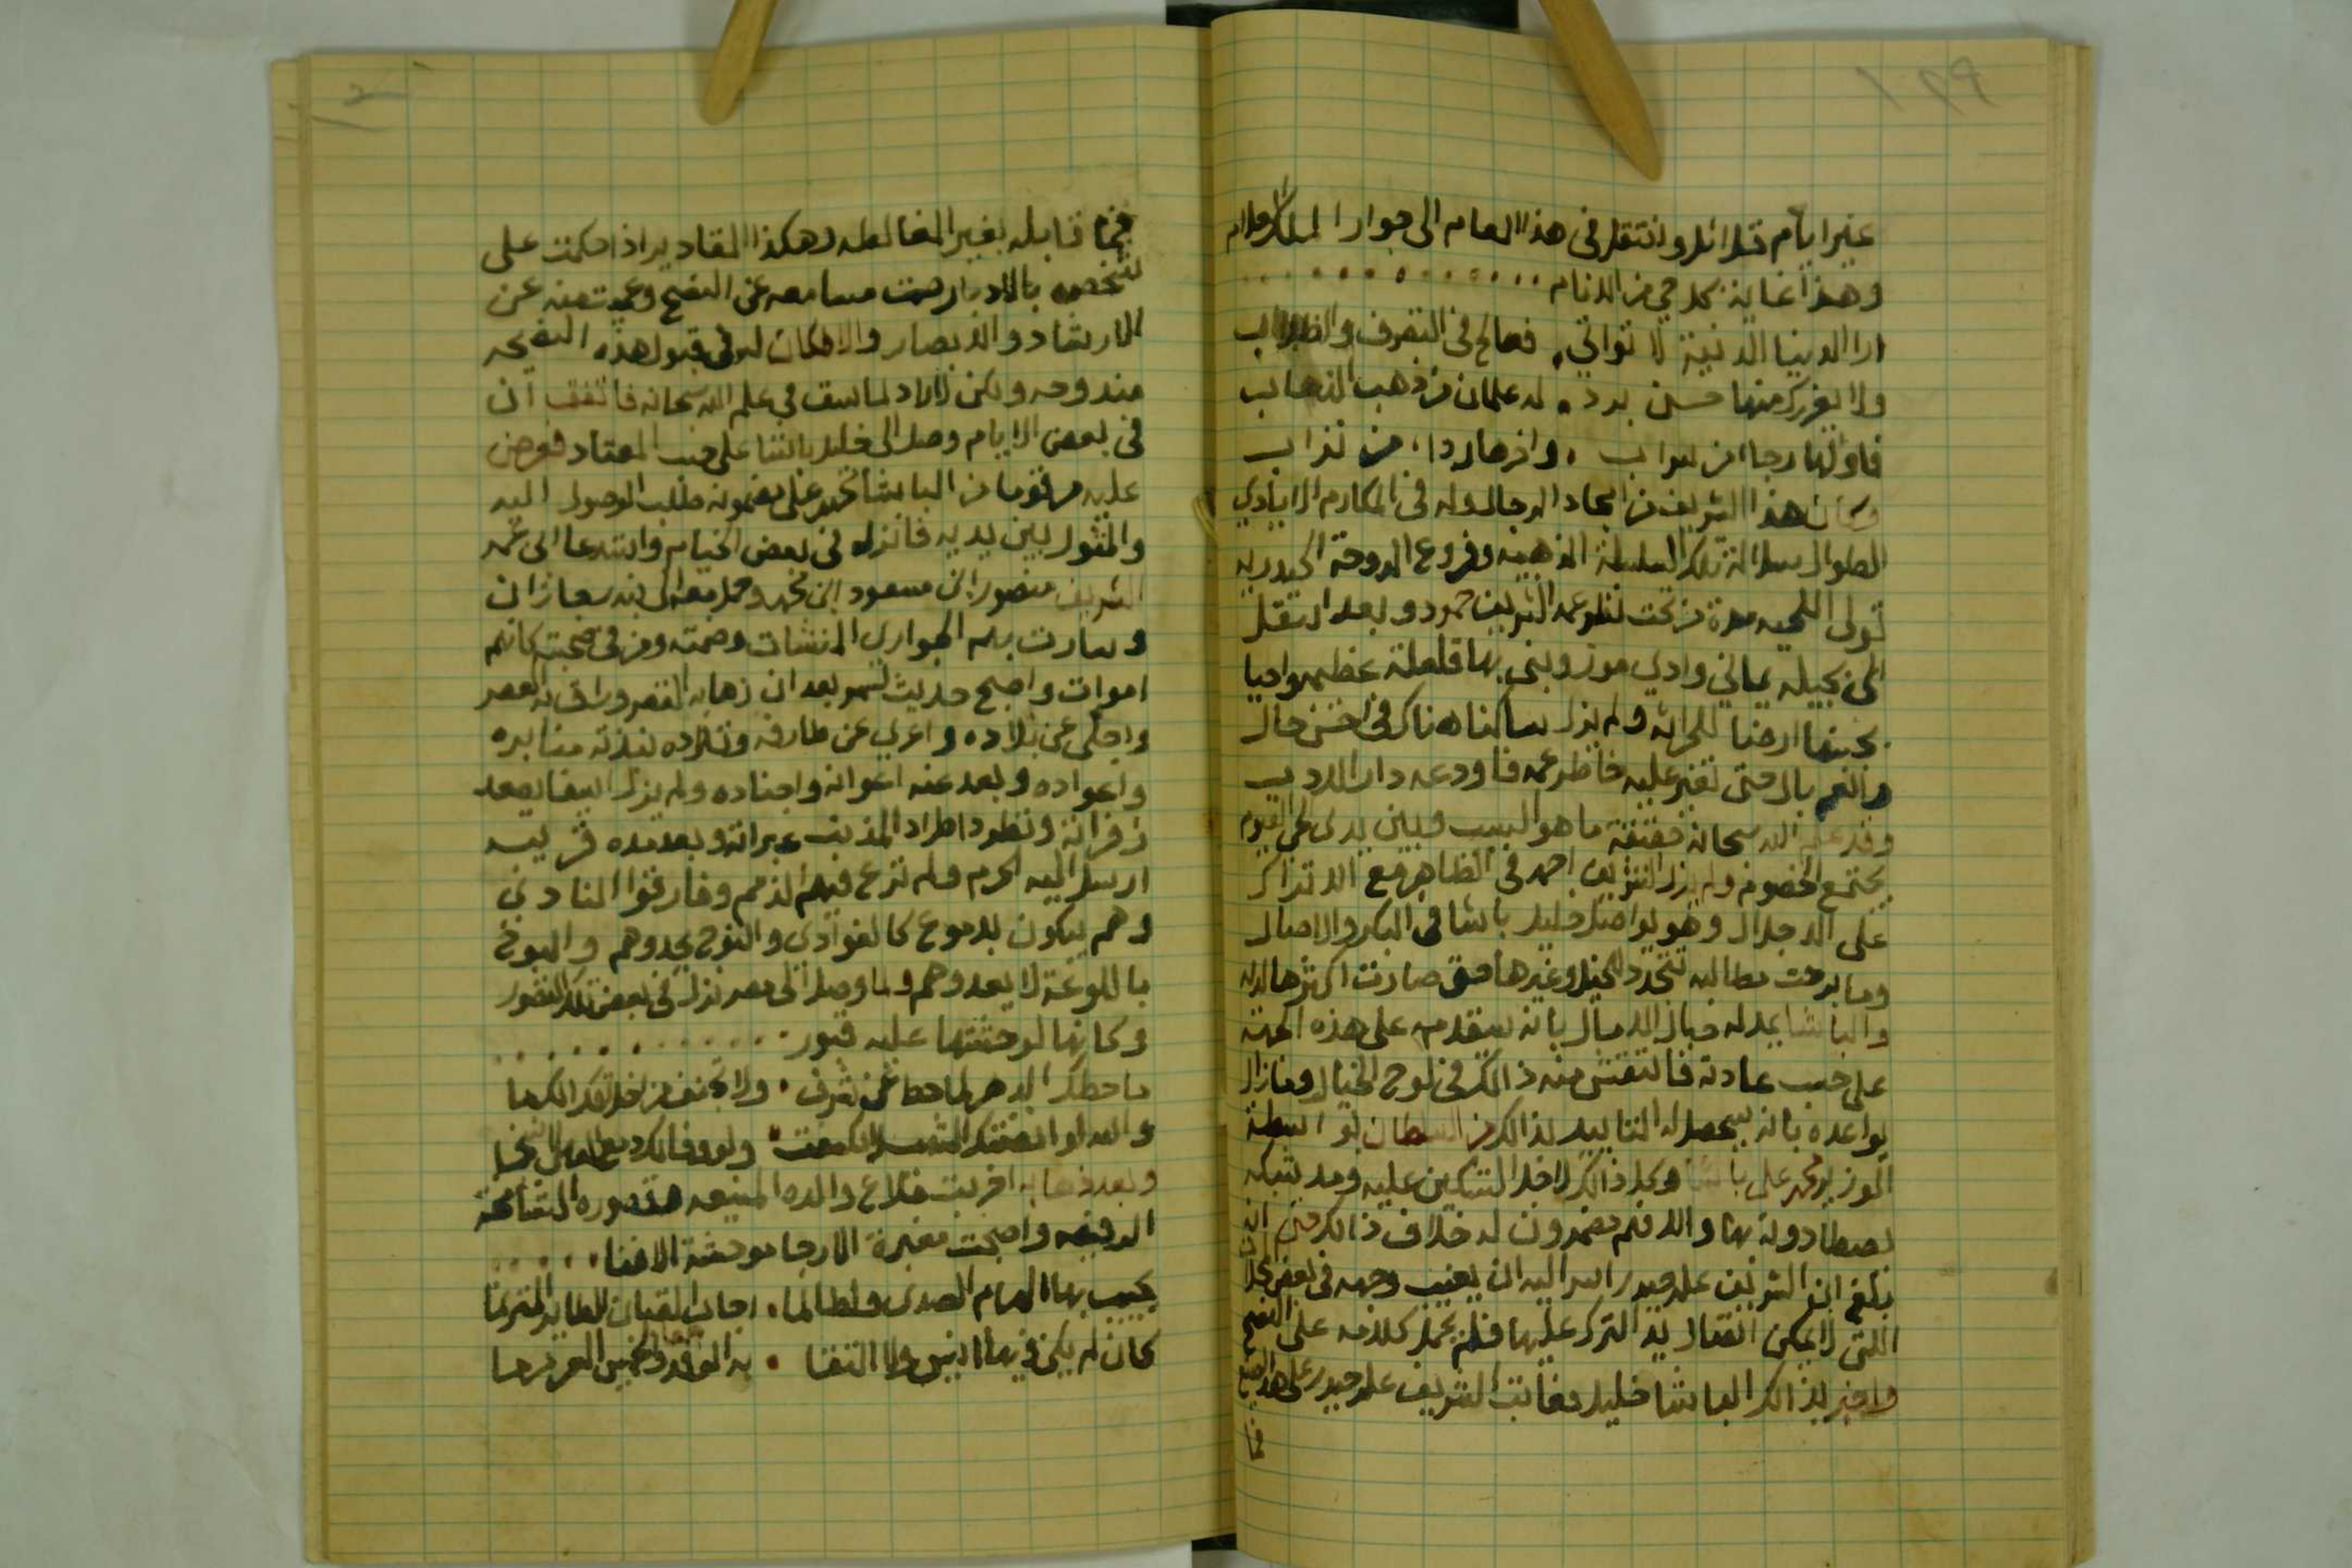 ١٩٩
غير ايام قلائل وانتقل في هذا العام الى جوار الملك العلام
وهذا غاية كل حي من الانام
ارا الدنيا الدنية لا تواتي . فعالج في التصرف والطلاب
ولا يغررك منها حسن برد . له علمان من ذهب الذهاب
فاولها رجا من سراب . واخرها ردا من تراب
وكان هذا الشريف من امجاد الرجال وله في المكارم الايادي
الطوال سلالة تلك السلسلة الذهبيه وفروع الدوحة الحيدريه
تولى اللحيه مدة من تحت نظر عمه الشريف حمود وبعد انتقل
الى بجيله يماني وادي مور وبنى بها قلعلة عظيمه واحيا
بجنبها ارضا للحراثه ولم يزل ساكنا هناك في احسن حال
وانعم بال حتى تغير عليه خاطر عمه فاودعه دار الادب
وقد علم الله سبحانه حقيقة ما هو السبب وبين يدى الحي القيوم
يجتمع الخصوم ولم يزل الشريف احمد في الظاهر مع الاتراك
على الاجلال وهو يواصل خليل باشا في البكر والاصال
وما برحت مطالبه تتجدد للخيل وغيرها حتى صارت اكثرها له
والباشا يمد له حبال الامال بانه سيقدمه على هذه الجهة
على حسب عادته فانتقش منه ذالك في لوح الخيال وما زال
يواعده بانه سيحصل له التاييد بذالك من السلطان بواسطة
الوزير محمد علي باشا وكل ذالك لاجل التسكين عليه ومد شبكه
لاصطا دونه بها والا فهم مضمرون له خلاف ذالك حتى انه
بلغ ان الشريف علي حيدر ارسل اليه ان يغيب وجهه في بعض المحلات
اللتي لا يمكن اتصال يد الترك عليها فلم يحمل كلامه على النصح
واخبر بذالك الباشا خليل فعاتب الشريف علي حيدر على هذا الصنع
فما
فما قابله بغير المغالطه وهكذا المقادير اذا حكمت على
شخص بالادبار صمت مسامعه عن النصح وعميت عينه عن
الارشاد والابصار والا فكان له في قبول هذه النصيحه
مندوحه ولكن لا راد لما سبق في علم الله سبحانه فاتفق ان
في بعض الايام وصل الى خليل باشا على حسب المعتاد فعرض
عليه مرقوما من الباشا محمد علي مضمونه طلب الوصول اليه
والمثول بين يديه فانزله في بعض الخيام واستدعا الى عمه
الشريف منصور ابن مسعود ابن محمد وحمل معه الى بندر جازان
وسارت بهم الجواري المنشات وضمته ومن في صحبته كانهم
اموات واصبح حديث سمر بعد ان زها به القصر وراق به العصر
واجلى عن بلاده واعري عن طارفه وتلاده تندبه منابره
واعواده وبعد عنه اعوانه واجناده ولم يزل ايضا يصعد
زفراته وتطرد اطراد المذنب عبراته وبعد مده قريبه
ارسل اليه الحرم ولم ترع فيهم الذمم وفارقوا النادي
وهم يبكون بدموع كالغوادي والنوح يحدوهم والبوح
باللوعة لا يعدوهم ولما وصل الى مصر نزل في بعض تلك القصور
وكانها لوحشتها عليه قبور
ما حطك الدهر لما حط عن شرف . ولا تجنف من اخلاقك الكرما
وبعد ذهابه اخربت قلاع والده المنيعه وقصوره الشامخة
الرفيعه واصبحت مغبرة الارجا موحشة الافنا
يجيب بها الهام الصدى ولطالما . اجاب القيان الطاير المترنما
كان لم يكن فيها انيس ولا التقا . به الوفد والخميس العرمرما